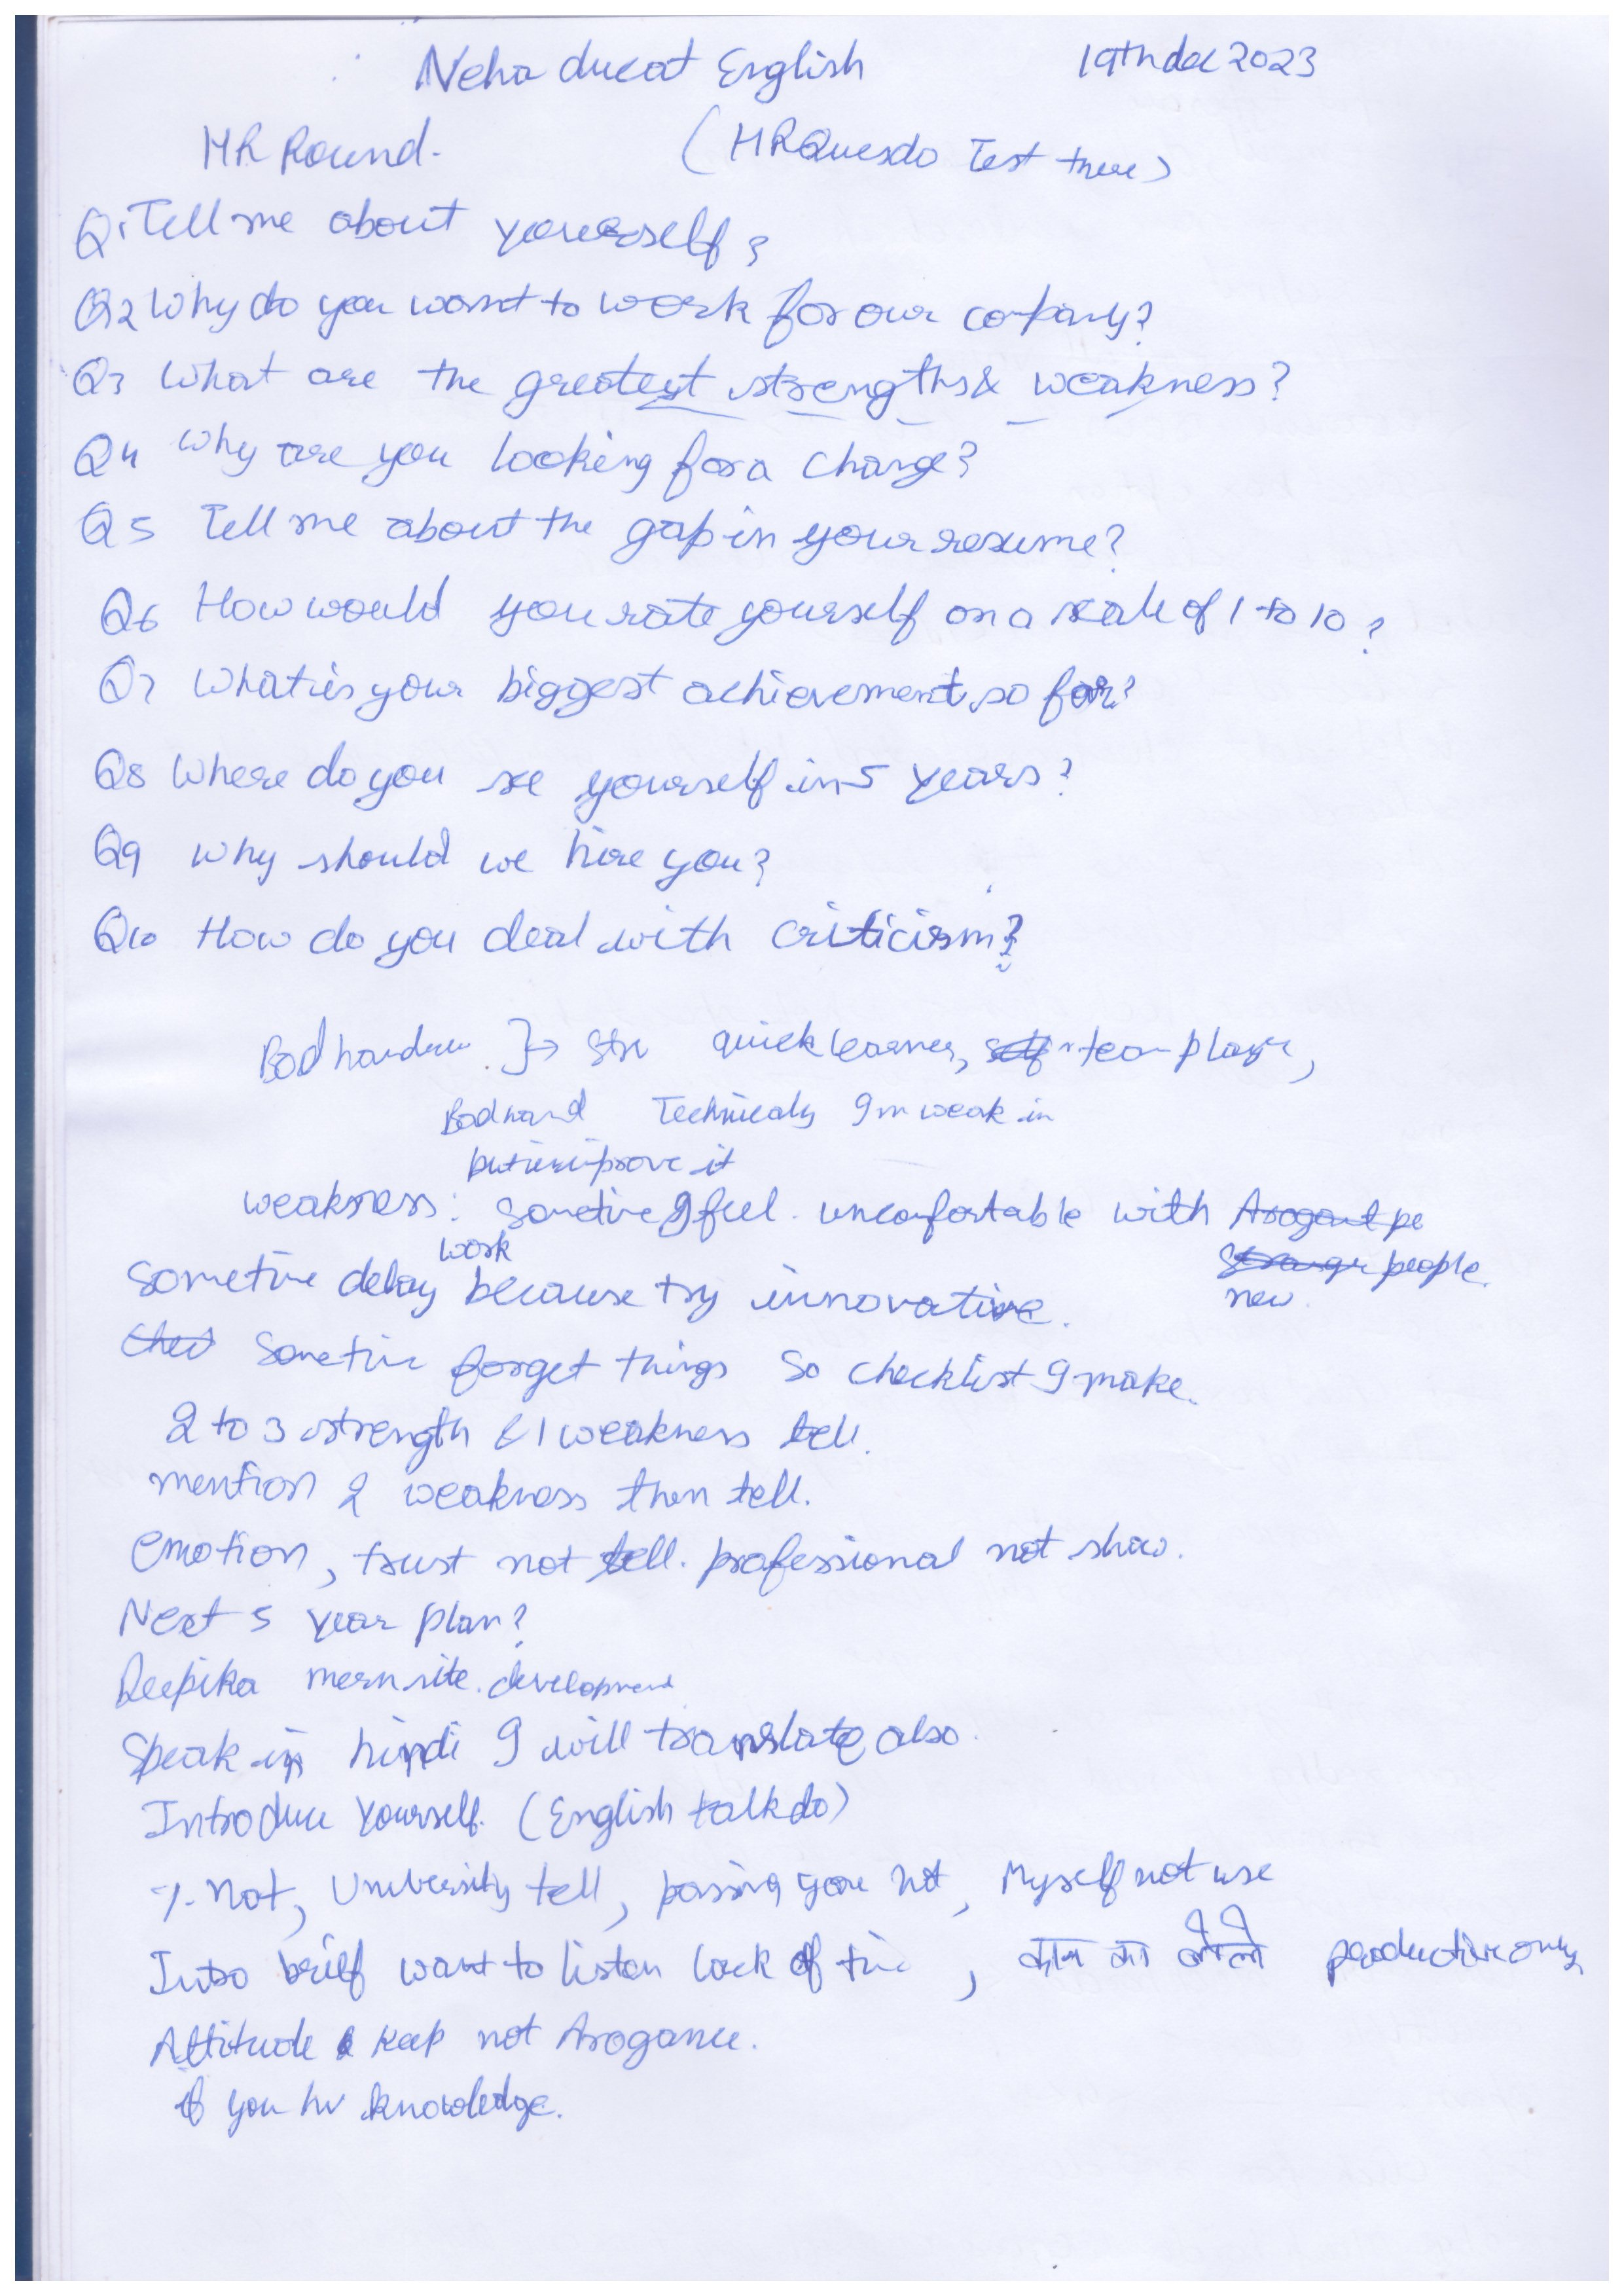 Neha ducat English 19th dec 2023
HR Round. (HR Ques do Test there)
Q1 Tell me about yourself?
Q2 Why do you want to work for our company?
Q3 What are the greatest strengths & weakness?
Q4 Why are you looking for a change?
Q5 Tell me about the gap in your resume?
Q6 How would you rate yourself on a scale of 1 to 10?
Q7 What is your biggest achievement so far?
Q8 Where do you see yourself in 5 years?
Q9 Why should we hire you?
Q10 How do you deal with criticism?
Bad } → Str quick learner, team player,
Bad hand Technicaly I m weak in
but improve it
weakness: sometime I feel uncomfortable with Arogant pe
work Strange people.
Sometime delay because try innovative. new.
Sometime forget things So checklist I make.
2 to 3 strength & 1 weakness tell.
mention 2 weakness then tell.
emotion, trust not tell. professional not show.
Next 5 year plan?
Deepika mern site development
Speak in hindi I will translate also.
Introduce Yourself. (English talk do)
%. not, University tell, passing year not, Myself not use
Intro brief want to listen lack of time, काम का बोलो productive only
Attitude keep not Arogance.
if you hv knowledge.